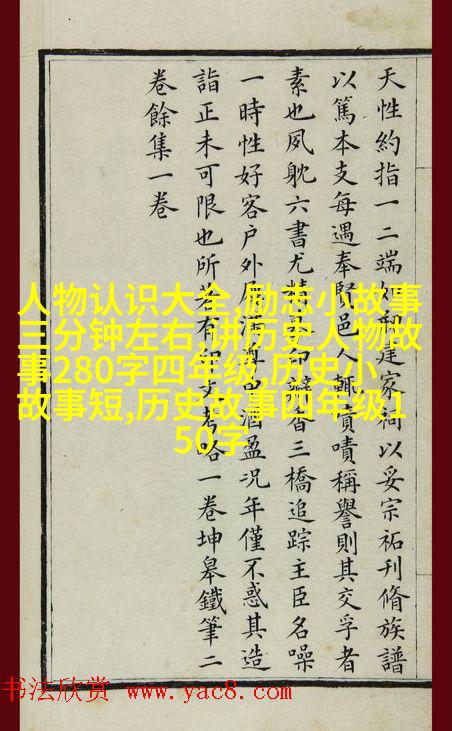 天性約指一二端如建家祠以妥宗祏刊脩族譜
以篤本支每遇奉賢邑人輒嘖嘖稱譽則其交孚者
素也夙躭六書尤精印瓣香三橋追踪主臣名噪
一時性好客戶外尊中酒盈況年僅不惑其造
詣正未可限也所著有印文考略一卷坤皋鐵筆二
卷餘集一卷
人物认识大全,励志小故事
三分钟左右,讲历史人物故
事280字四年级,历史小
故事短,历史故事四年级1
50字
书法欣赏 www.yac8.com